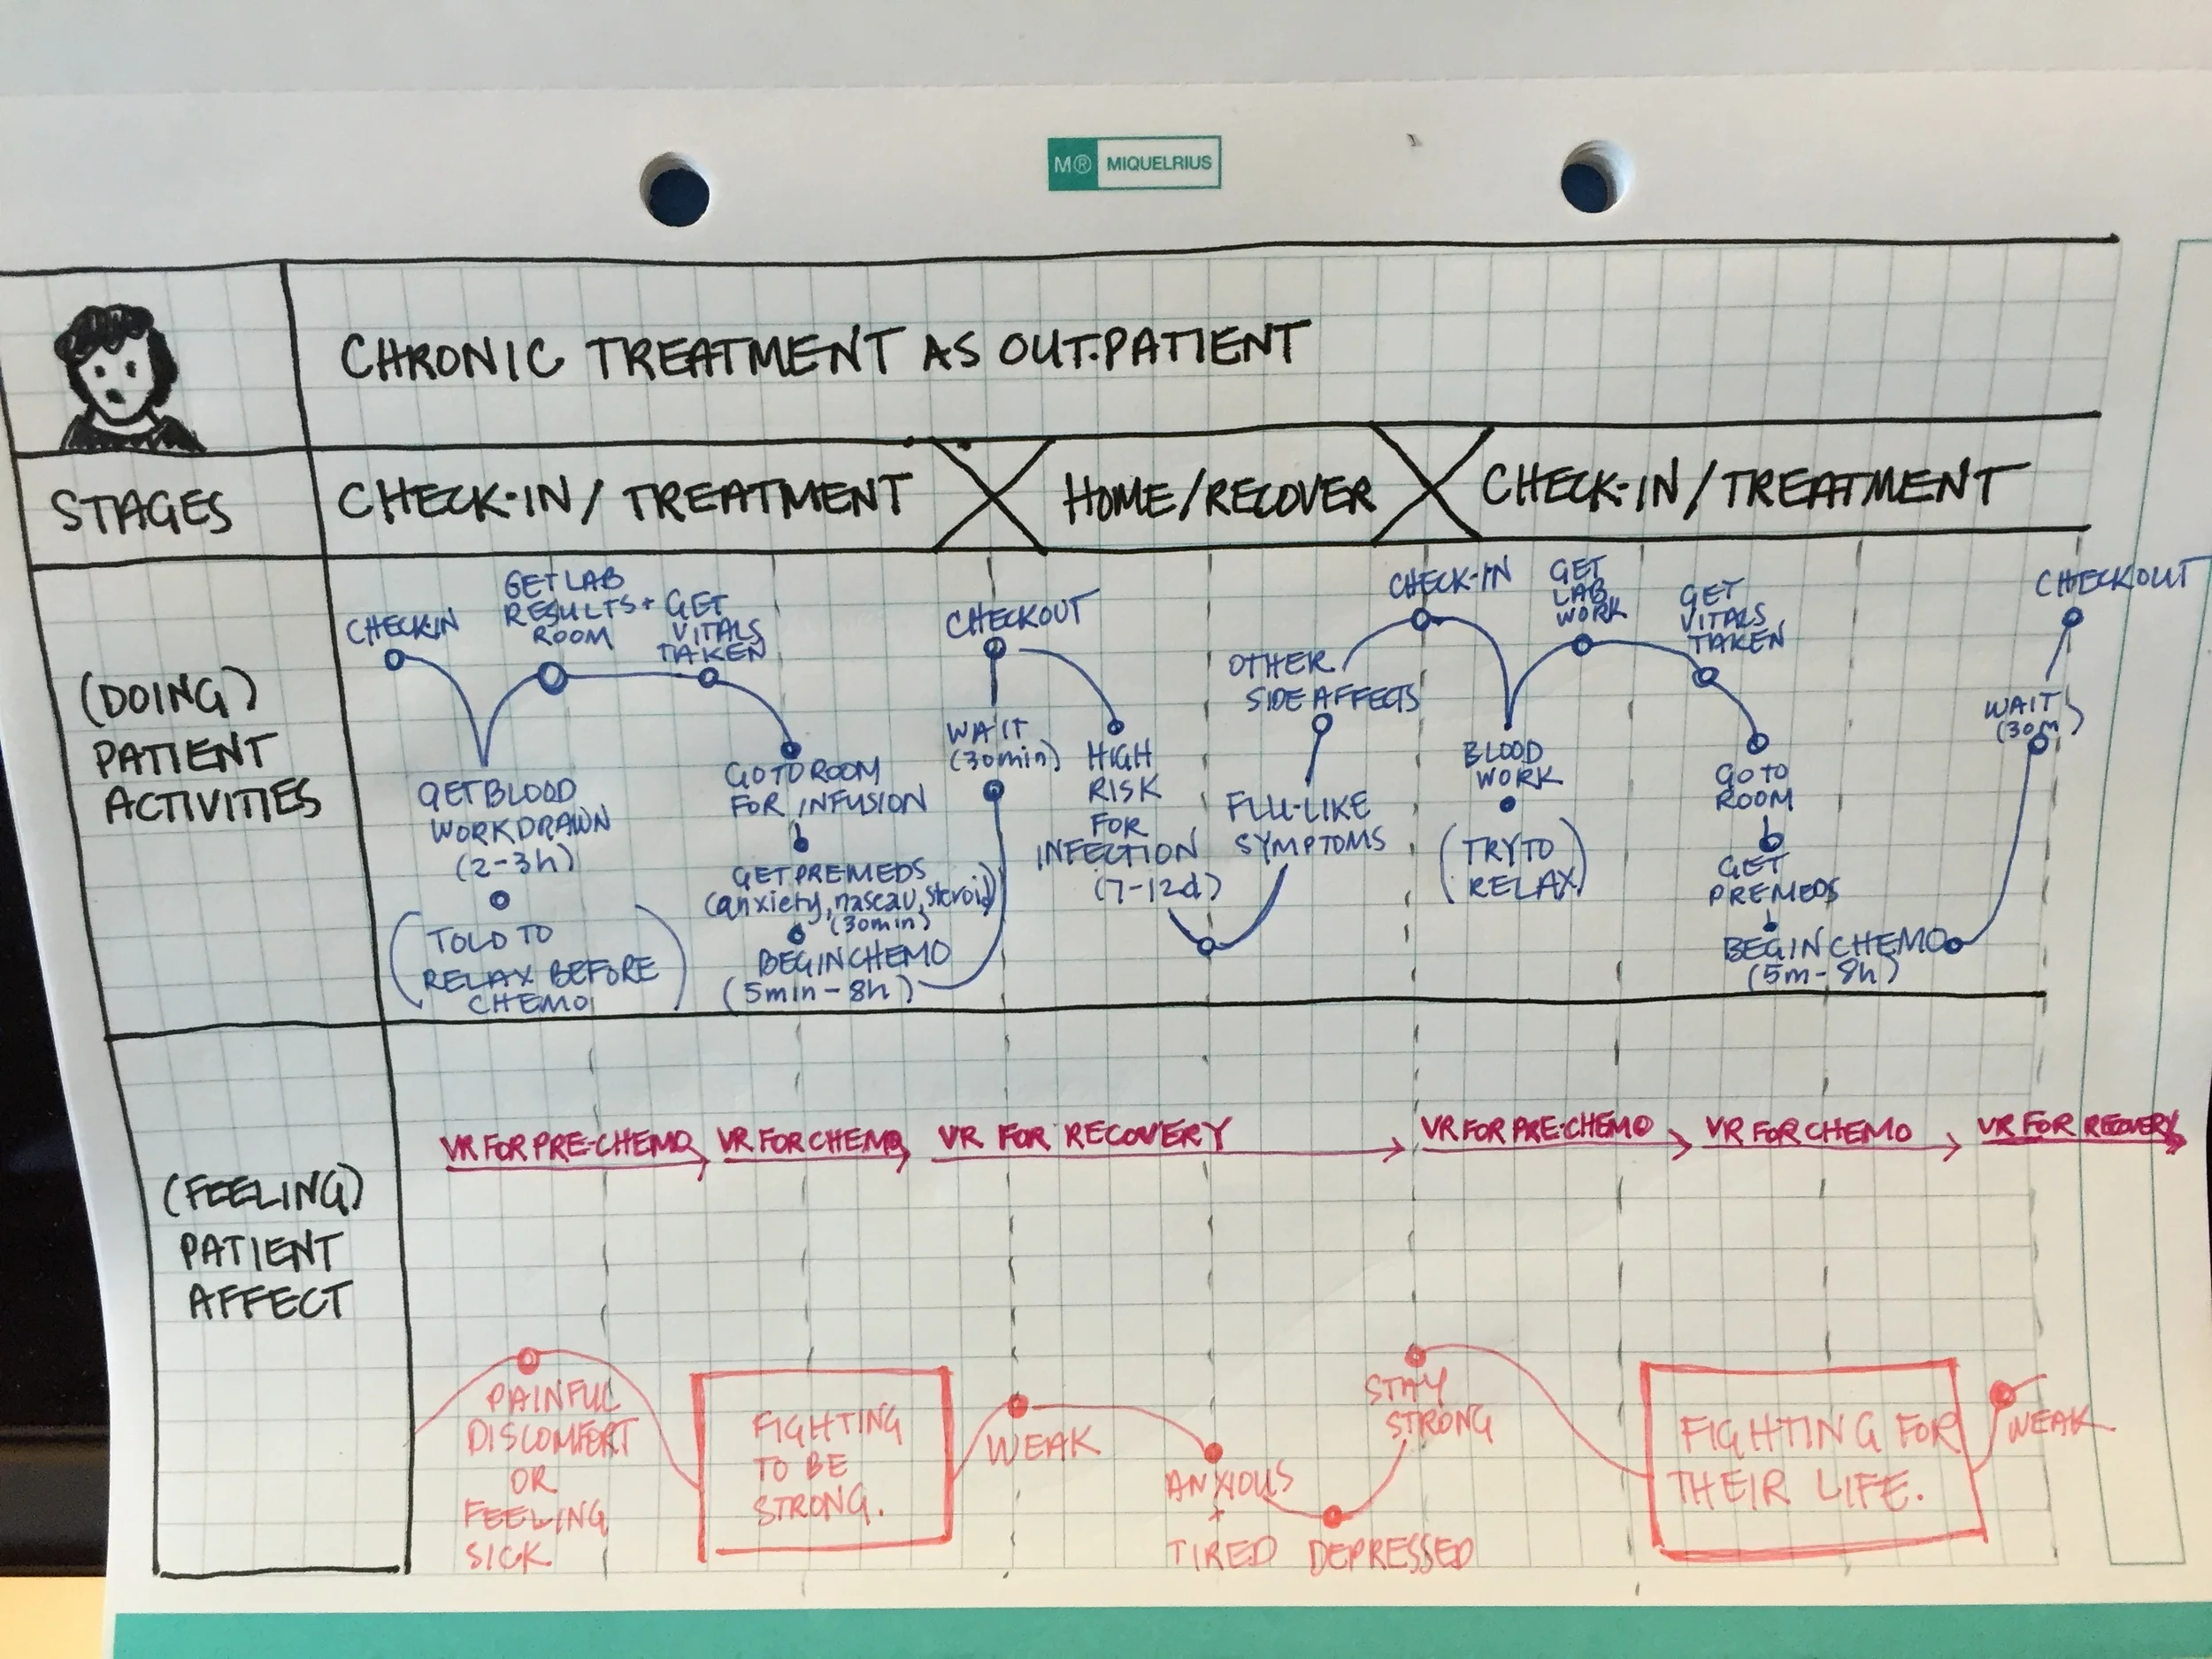 M® MIQUELRIUS
CHRONIC TREATMENT AS OUT.PATIENT
STAGES
CHECK-IN / TREATMENT
HOME/RECOVER
CHECK-IN/TREATMENT
(DOING)
PATIENT
ACTIVITIES
CHECKIN
GET BLOOD
WORK DRAWN
(2-3h)
(TOLD TO
RELAX BEFORE
CHEMO)
GET LAB
RESULTS +
ROOM
GET
VITALS
TAKEN
GO TO ROOM
FOR INFUSION
GET PREMEDS
(anxiety, naseau, steroid)
(30min)
BEGIN CHEMO
(5min-8h)
WAIT
(30min)
CHECKOUT
HIGH
RISK
FOR
INFECTION
(7-12d)
FLU-LIKE
SYMPTOMS
OTHER
SIDE AFFECTS
CHECK-IN
BLOOD
WORK
(TRY TO
RELAX)
GET
LAB
WORK
GET
VITALS
TAKEN
GO TO
ROOM
GET
PREMEDS
BEGIN CHEMO
(5m-8h)
WAIT
(30m)
CHECKOUT
(FEELING)
PATIENT
AFFECT
VR FOR PRE-CHEMO
VR FOR CHEMO
VR FOR RECOVERY
VR FOR PRE-CHEMO
VR FOR CHEMO
VR FOR RECOVERY
PAINFUL
DISCOMFORT
OR
FEELING
SICK
FIGHTING
TO BE
STRONG.
WEAK
ANXIOUS
+
TIRED
DEPRESSED
STAY
STRONG
FIGHTING FOR
THEIR LIFE.
WEAK